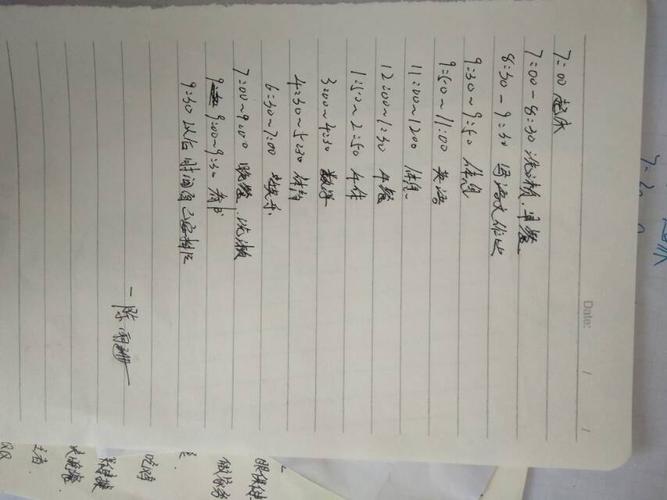 Date: / /
7:00 起床
7:00-8:30 洗漱.早餐
8:30-9:30 写语文作业
9:30~9:50 休息
9:50~11:00 英语
11:00~1200 休息
12:00~1:30 午餐
1:50~2:50 午休
3:00~4:30 数学
4:30~5:30 体育
6:30~7:00
7:00~9:00 晚餐,洗漱
9:00~9:30 看书
9:30 以后 时间自己安排
一陈雨珊
眼保健
做家务
吃鸡
主高
QQ